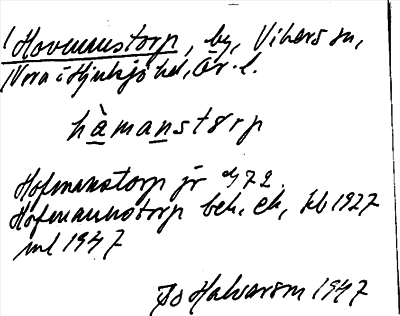 Hovmanstorp, by, Vikers sn,
Nora o Hjulsjö hd, Ör. l.
hàmanstɤrp
Hofmanstorp jr 72
Hofmannstorp bek. ek, kb 1927
ml 1947
Halvarson 1947